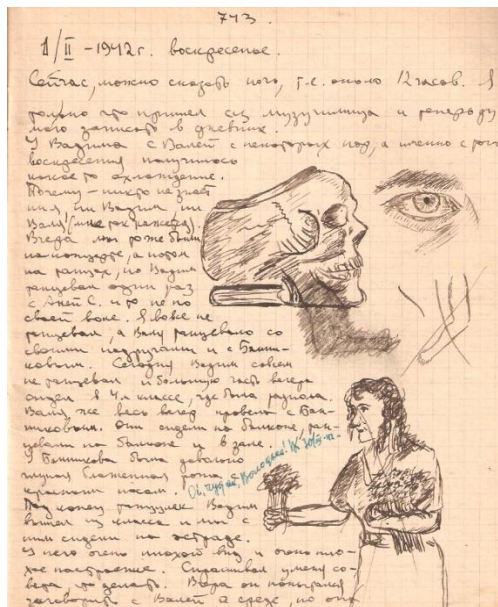 743.
1/II – 1942 г. воскресенье.
Сейчас, можно сказать ночь, т.е. около 12 часов. Я
только что пришел из музучилища и
записать в дневник.
У Вадима с Валей с некоторых пор, а именно с
воскресения получилось
какое то охлаждение.
Почему – никто не знает
ни я, ни Вадим, ни
Валя (мне так кажется).
Вчера мы тоже были
на концерте, а потом
на танцах, но Вадим
танцевал один раз
с Аней С. и то не по
своей воле. Я вовсе не
танцевал, а Валя танцевала со
своими подругами и с
Сегодня Вадим совсем
не танцевал и большую часть вечера
сидел в 4м классе, где была
Валя, же весь вечер провела с
Они сидели на балконе,
на балконе и в зале.
У была довольно
глупая рожа с
красным носом.
Ой, чудак, Володька!
Под конец танцулек Вадим
вышел из класса и мы с
ним сидели на эстраде.
У него очень плохой вид и очень пло-
хое настроение. Спрашивал у меня со-
вета, что делать. Вчера он попытался
заговорить с Валей о но она